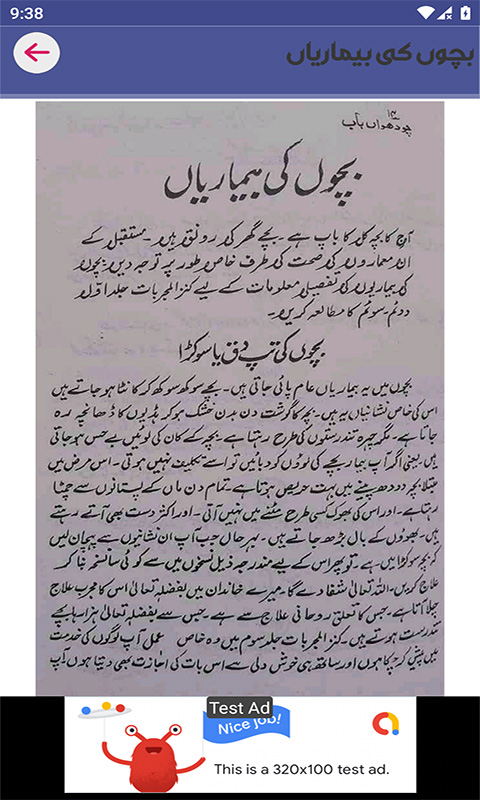 9:38
بچوں کی بیماریاں
۱۴
چودھواں باب
بچوں کی بیماریاں
آج کا بچہ کل کا باپ ہے۔ بچے گھر کی رونق ہیں۔ مستقبل کے
ان معماروں کی صحت کی طرف خاص طور پر توجہ دیں۔ بچوں
کی بیماریوں کی تفصیلی معلومات کے لیے کنز المجربات جلد اول
دوئم۔ سوئم کا مطالعہ کریں۔
بچوں کی تپ دق یا سوکڑا
بچوں میں یہ بیماریاں عام پائی جاتی ہیں۔ بچے سوکھ سوکھ کر کانٹا ہو جاتے ہیں
اس کی خاص نشانیاں یہ ہیں۔ بچہ کا گوشت دن بدن خشک ہو کر ہڈیوں کا ڈھانچہ رہ
جاتا ہے۔ مگر چہرہ تندرستوں کی طرح رہتا ہے۔ بچہ کے کان کی لویں بے حس ہو جاتی
ہیں یعنی اگر آپ بیمار بچے کی لوؤں کو دبائیں تو اسے تکلیف نہیں ہوتی۔ اس مرض میں
مبتلا بچہ دودھ پینے میں بہت حریص ہوتا ہے تمام دن ماں کے پستانوں سے چمٹا
رہتا ہے۔ اور اس کی بھوک کسی طرح مٹنے میں نہیں آتی۔ اور اکثر دست بھی آتے رہتے
ہیں۔ بھوؤں کے بال بڑھ جاتے ہیں۔ بہر حال جب آپ ان نشانیوں سے پہچان لیں
کہ بچہ سوکڑا میں ہے۔ تو پھر اس کے لیے مندرجہ ذیل نسخوں میں سے کوئی سا نسخہ بنا کر
علاج کریں۔ اللہ تعالیٰ شفا دے گا۔ میرے خاندان میں بفضلہ تعالیٰ اس کا مجرب علاج
چلا آتا ہے۔ جس کا تعلق روحانی علاج سے ہے۔ جس سے بفضلہ تعالیٰ ہزارہا بچے
تندرست ہوتے ہیں۔ کنز المجربات جلد سوم میں وہ خاص عمل آپ لوگوں کی خدمت
میں پیش کر چکا ہوں اور ساتھ ہی خوش دلی سے اس بات کی اجازت بھی دیتا ہوں آپ
Test Ad
Nice job!
This is a 320x100 test ad.